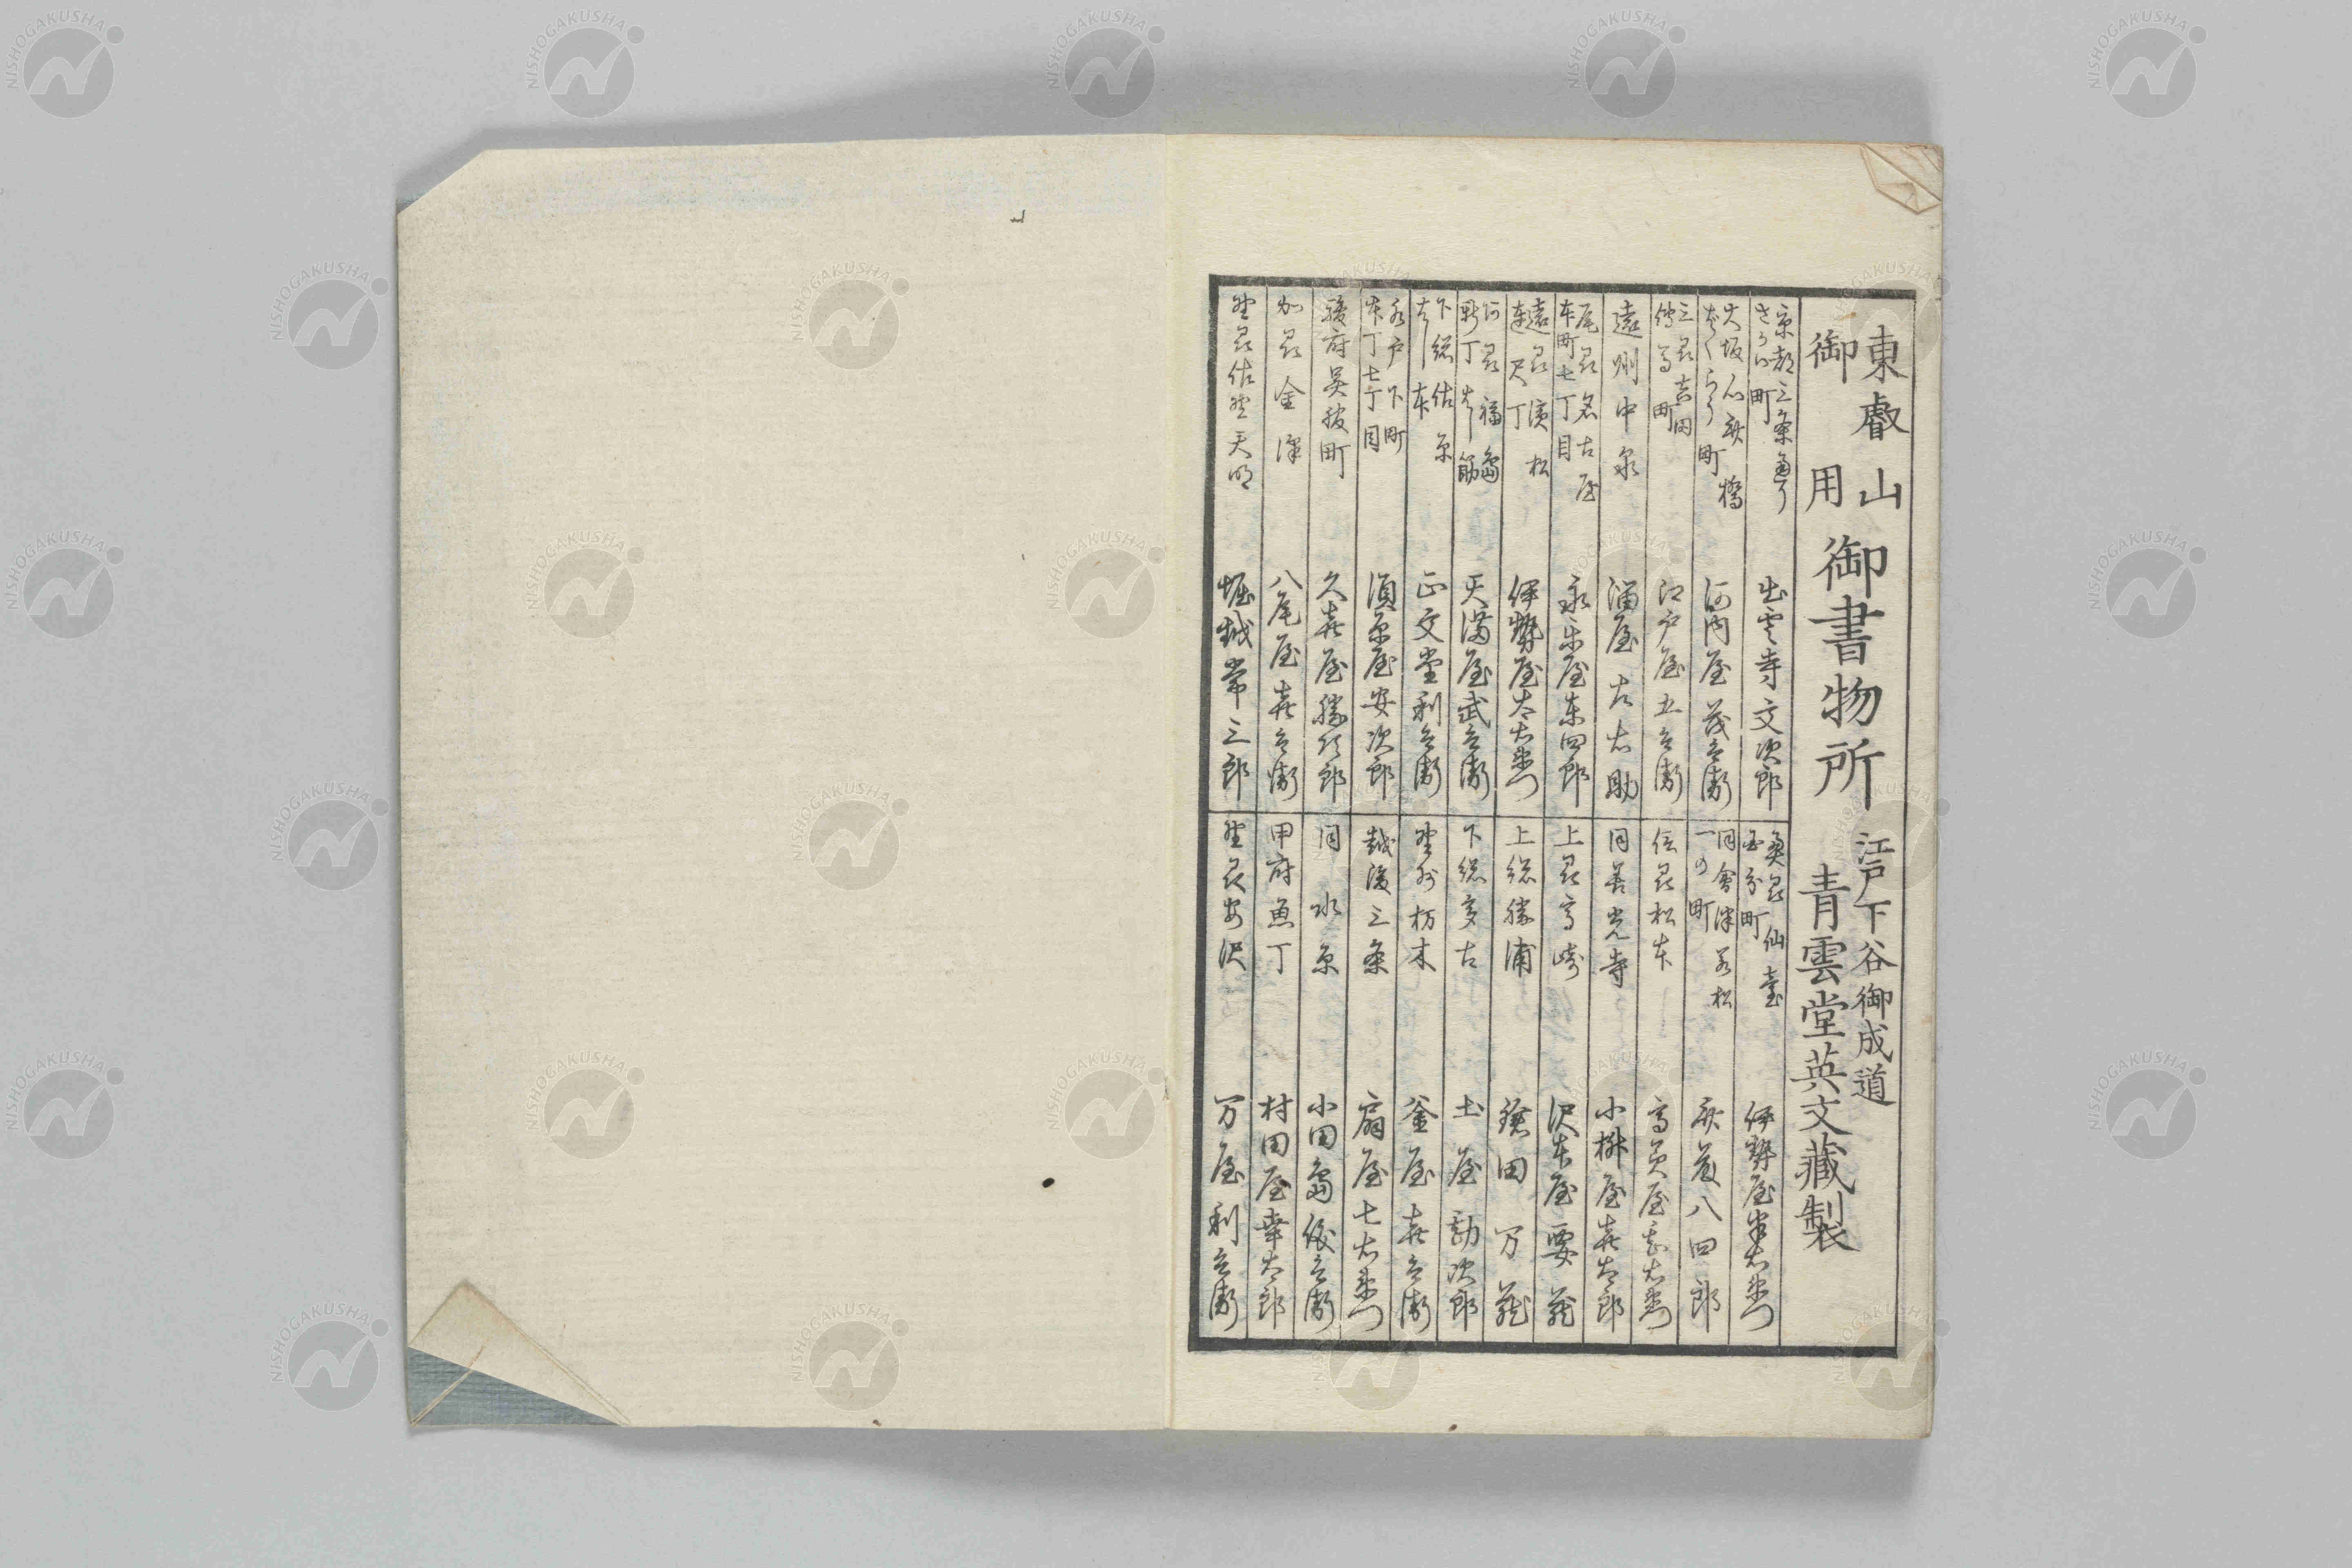 東叡山
御用
御書物所
江戸下谷御成道
青雲堂英文藏製
京都三条通り
さかい町
出雲寺文次郎
大坂心斎橋
ばくらう町
河内屋茂兵衛
三州吉田
傳馬町
江戸屋五兵衛
遠州中泉
溜屋古右助
尾州名古屋
本町七丁目
永楽屋東四郎
遠州濱松
連尺丁
伊勢屋太右衛門
福島
新丁筋
天満屋武兵衛
下総佐原
正文堂利兵衛
水戸下町
本丁七丁目
須原屋安次郎
駿府呉服町
久喜屋勝次郎
加州金澤
八尾屋喜兵衛
野州佐野天明
堀越常三郎
奥州仙臺
国分町
伊勢屋半右衛門
同會津若松
一の町
斎藤八四郎
信州松本
高美屋甚右衛門
同善光寺
小桝屋喜太郎
上州高崎
沢本屋要蔵
上総勝浦
鎗田万蔵
下総多古
土屋勘次郎
野州栃木
釜屋喜兵衛
越後三条
扇屋七右衛門
同水原
小田島俊兵衛
甲府魚丁
村田屋幸太郎
野州安沢
万屋利兵衛
NISHOGAKUSHA